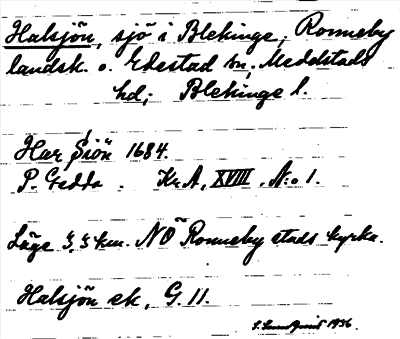 Halsjön, sjö i Blekinge; Ronneby
landsk. o. Edestad sn, Medelstads
hd; Blekinge l.
Har Siön 1684.
P. Gedda. Kr.A, XVIII. N:o 1.
Läge 3,5 km. NO Ronneby stads kyrka.
Halsjön ek, G. 11.
1936.